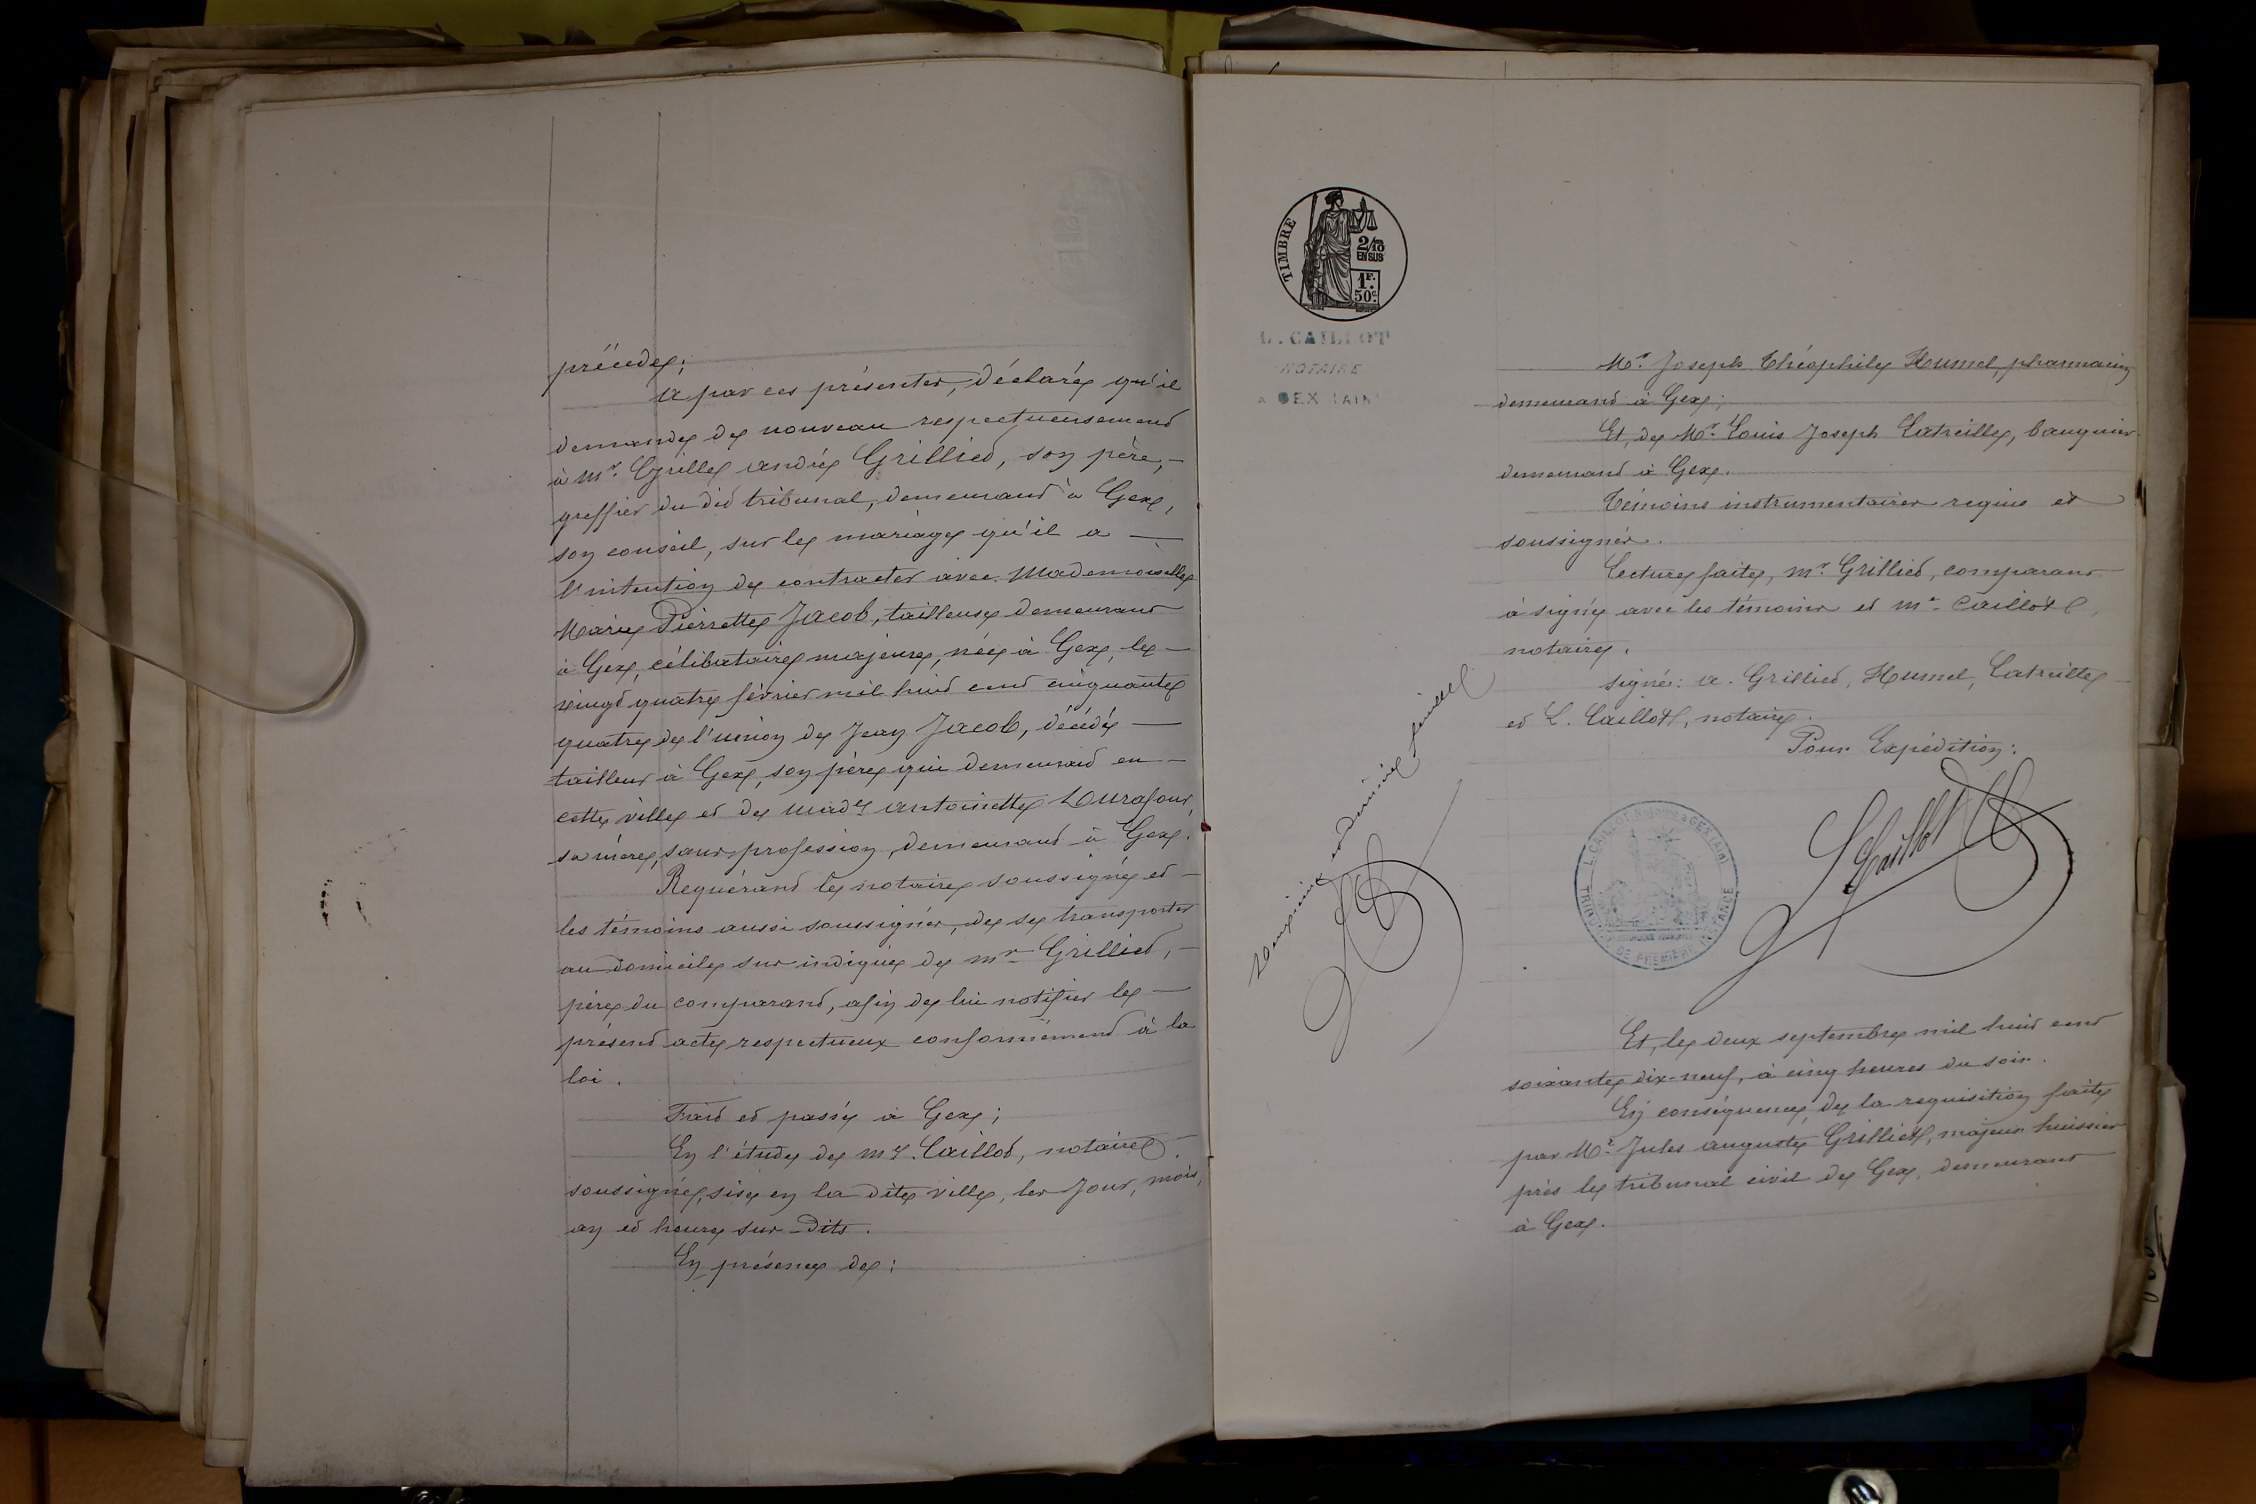 précède;
A par ces présentes, déclaré qu'il
demande de nouveau respectueusement
à Mr. Cyrille André Grilliet, son père,
greffier du dit tribunal, demeurant à Gex,
son conseil, sur le mariage qu'il a
l'intention de contracter avec Mademoiselle
Marie Pierrette Jacob, tailleuse demeurant
à Gex, célibataire majeure, née à Gex, le
vingt quatre février mil huit cent cinquante
quatre de l'union de Jean Jacob, décédé
tailleur à Gex, son père qui demeurait en
cette ville et de Made Antoinette Durafour,
sa mère, sans profession, demeurant à Gex.
Requérant le notaire soussigné et
les témoins aussi soussignés, de se transporter
au domicile sur indiqué de Mr Grilliet,
père du comparant, afin de lui notifier le
présent acte respectueux conformément à la
loi.
Fait et passé à Gex;
En l'étude de Me. Caillot, notaire
soussigné, sise en la dite ville, les jour, mois,
an et heure sur-dits.
En présence de:
TIMBRE
2/10
EN SUS
1F.
50c.
L. CAILLOT
NOTAIRE
A GEX (AIN)
Mr. Joseph Théophile Humel, pharmacien
demeurant à Gex;
Et, de Mr. Louis Joseph Latreille, banquier
demeurant à Gex.
Témoins instrumentaires requis et
soussignés.
Lecture faite, Mr. Grilliet, comparant
à signé avec les témoins et Me Caillot
notaire.
signé: A. Grilliet, Humel, Latreille
et L. Caillot, notaire.
Pour Expédition:
L Caillot
L. CAILLOT Notaire à GEX (AIN)
TRIBUNAL DE PREMIERE INSTANCE
Deuxième et dernière feuille
Et, le deux septembre mil huit cent
soixante dix-neuf, à cinq heures du soir.
En conséquence de la requisition faite
par Mr. Jules Auguste Grilliet, majeur huissier
près le tribunal civil de Gex, demeurant
à Gex.